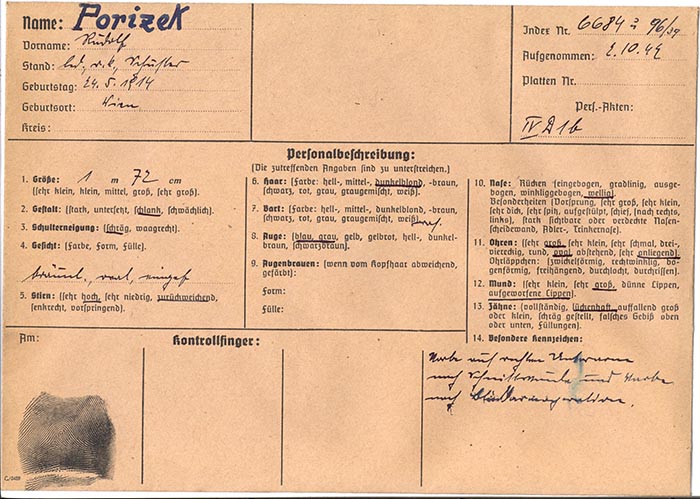 Name: Porizek
Vorname: Rudolf
Stand: led., r.k., Schuster
Geburtstag: 24.5.1914
Geburtsort: Wien
Kreis:
Index Nr. 6684 96/39
Aufgenommen: 2.10.42
Platten Nr.
Pers.-Akten:
IV D 1 b
Personalbeschreibung:
(Die zutreffenden Angaben sind zu unterstreichen.)
1. Größe: 1 m 72 cm
(sehr klein, klein, mittel, groß, sehr groß).
2. Gestalt: (stark, untersetzt, schlank, schwächlich).
3. Schulterneigung: (schräg, waagrecht).
4. Gesicht: (Farbe, Form, Fülle).
bräunl., oval, eingef
5. Stirn: (sehr hoch, sehr niedrig, zurückweichend,
senkrecht, vorspringend).
6. Haar: (Farbe: hell-, mittel-, dunkelblond, -braun,
schwarz, rot, grau, graugemischt, weiß).
7. Bart: (Farbe: hell-, mittel-, dunkelblond, -braun,
schwarz, rot, grau, graugemischt, weiß)
8. Auge: (blau, grau, gelb, gelbrot, hell-, dunkel-
braun, schwarzbraun).
9. Augenbrauen: (wenn vom Kopfhaar abweichend,
gefärbt):
Form:
Fülle:
10. Nase: Rücken (eingebogen, gradlinig, ausge-
bogen, winkliggebogen, wellig).
Besonderheiten (Vorsprung, sehr groß, sehr klein,
sehr dick, sehr spitz, aufgestülpt, schief, (nach rechts,
links), stark sichtbare oder verdeckte Nasen-
scheidewand, Adler-, Trinkernase).
11. Ohren: (sehr groß, sehr klein, sehr schmal, drei-,
viereckig, rund, oval, abstehend, sehr anliegend).
Ohrläppchen: (zwickelförmig, rechtwinklig, bo-
genförmig, freihängend, durchlocht, durchrissen).
12. Mund: (sehr klein, sehr groß, dünne Lippen,
aufgeworfene Lippen).
13. Zähne: (vollständig, lückenhaft, auffallend groß
oder klein, schräg gestellt, falsches Gebiß oben
oder unten, Füllungen).
14. Besondere Kennzeichen:
Narbe auf rechten Unterarm
nach Schnittwunde und Narbe
nach Blinddarmoperation.
Am:
Kontrollfinger: